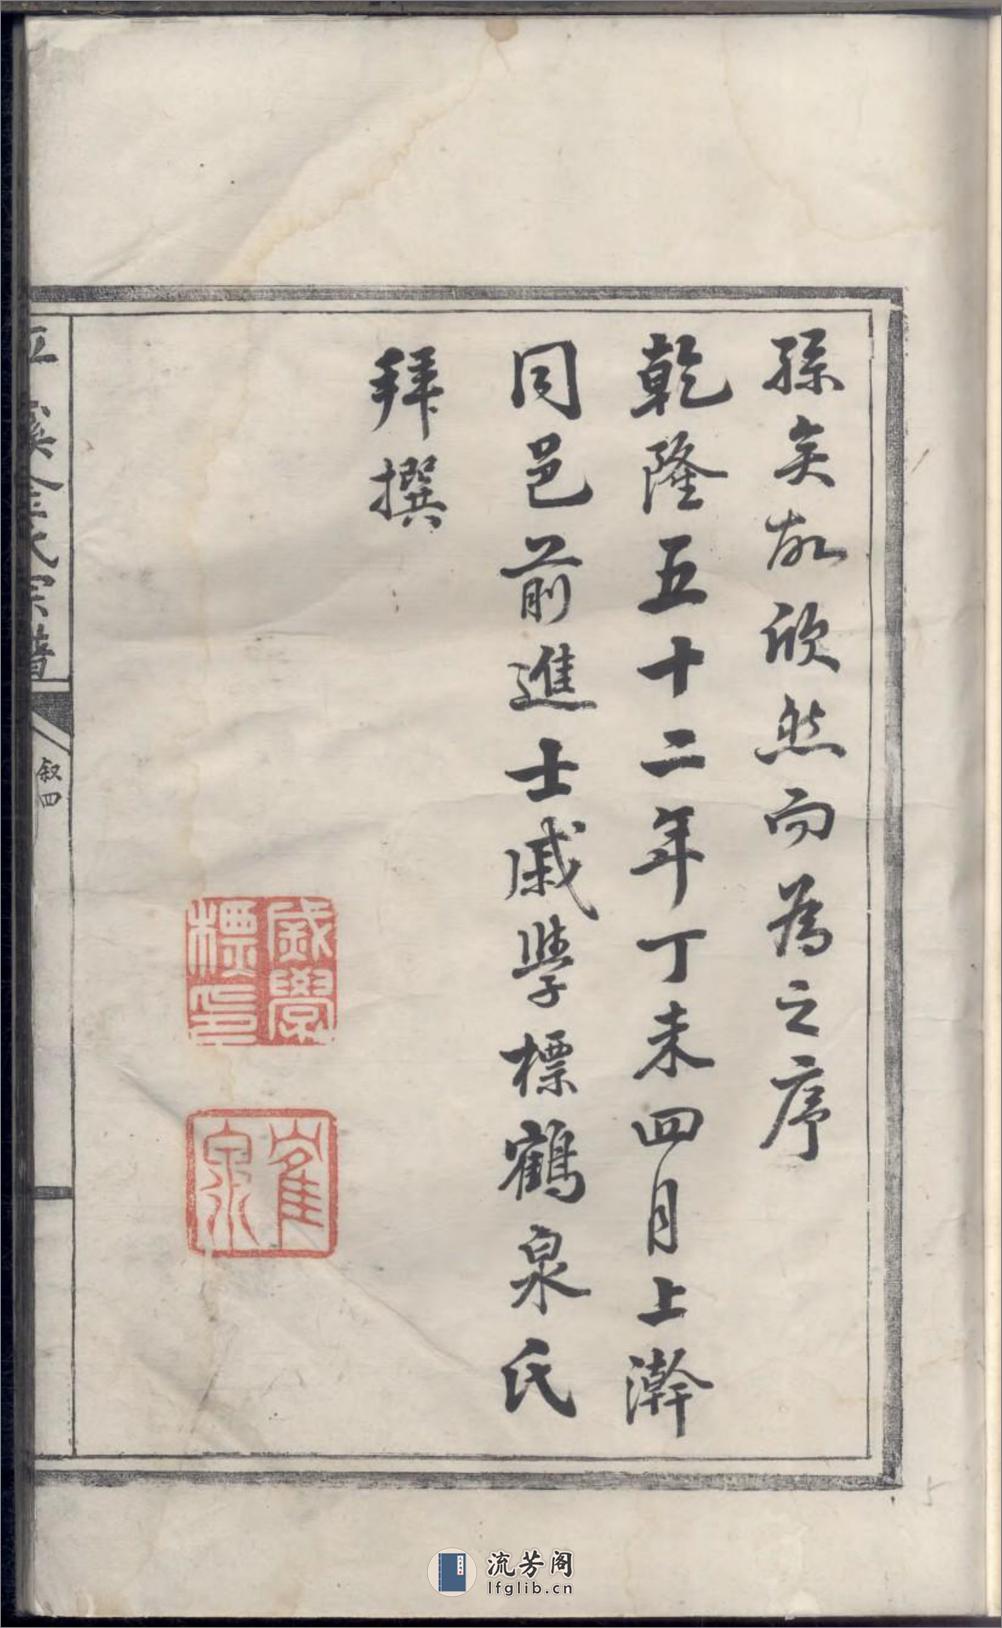 孫矣故欣然而為之序
乾隆五十二年丁未四月上澣
同邑前進士戚學標鶴泉氏
拜撰
戚學
標印
鶴
泉
溪金氏宗譜
叙四
流芳阁
lfglib.cn
5